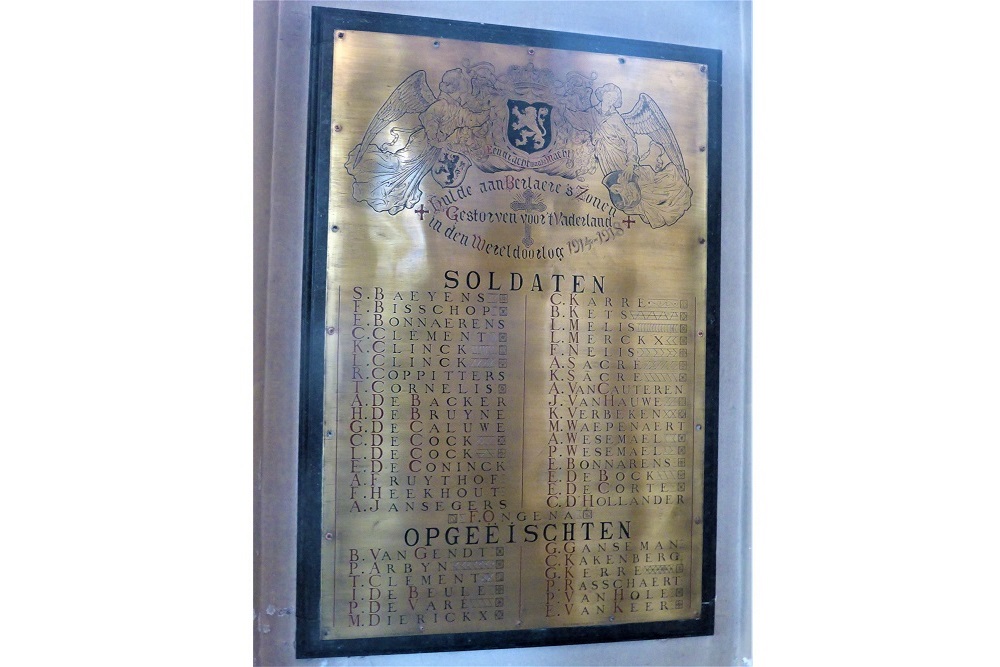 Eendracht maakt macht
Hulde aan Berlaere's Zonen
Gestorven voor 't Vaderland
in den Wereldoorlog 1914-1918
SOLDATEN
S. BAEYENS
F. BISSCHOP
E. BONNAERENS
C. CLEMENT
K. CLINCK
L. CLINCK
R. COPPITTERS
T. CORNELIS
A. DE BACKER
H. DE BRUYNE
G. DE CALUWE
C. DE COCK
L. DE COCK
E. DE CONINCK
A. FRUYTHOF
F. HEEKHOUT
A. JANSEGERS
C. KARRE
B. KETS
L. MELIS
L. MERCKX
F. NELIS
A. SACRE
K. SACRE
A. VAN CAUTEREN
J. VAN HAUWE
K. VERBEKEN
M. WAEPENAERT
A. WESEMAEL
P. WESEMAEL
E. BONNARENS
E. DE BOCK
E. DE CORTE
C. D'HOLLANDER
F. ONGENA
OPGEËISCHTEN
B. VAN GENDT
P. ARBYN
T. CLEMENT
I. DE BEULE
P. DE VARE
M. DIERICKX
G. GANSEMAN
C. KAKENBERG
G. KERRE
P. RASSCHAERT
P. VAN HOLE
E. VAN KEER